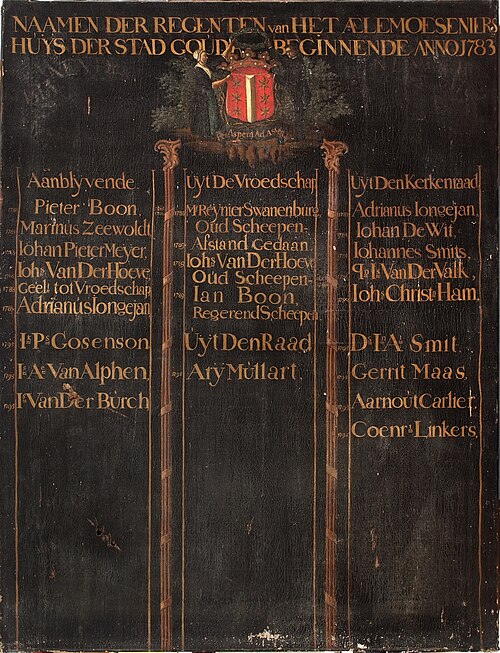 NAAMEN DER REGENTEN van HET ÆLEMOESENIERS
HUYS DER STAD GOUDA BEGINNENDE ANNO 1783
Per Aspera Ad Astra
Aanblyvende
Pieter Boon
Marinus Zeewoldt
Iohan Pieter Meyer,
Ioh.s Van Der Hoeve
Geel.t tot Vroedschap
Adrianus Iongejan
I.s P.s Gosenson
I.s A.s Van Alphen,
I.s Van Der Burch
Uyt De Vroedschap
M.r Reynier Swanenburg
Oud Scheepen-
Afstand Gedaan
Ioh.s Van Der Hoeve
Oud Scheepen-
Ian Boon,
Regerend Scheepen
Uyt Den Raad
Ary Mullart
Uyt Den Kerkenraad
Adrianus Iongejan,
Iohan De Wit,
Iohannes Smits,
Van Der Valk,
Ioh.s Christ.s Ham,
Smit,
Gerrit Maas,
Aarnout Carlier,
Coenr.s Linkers,